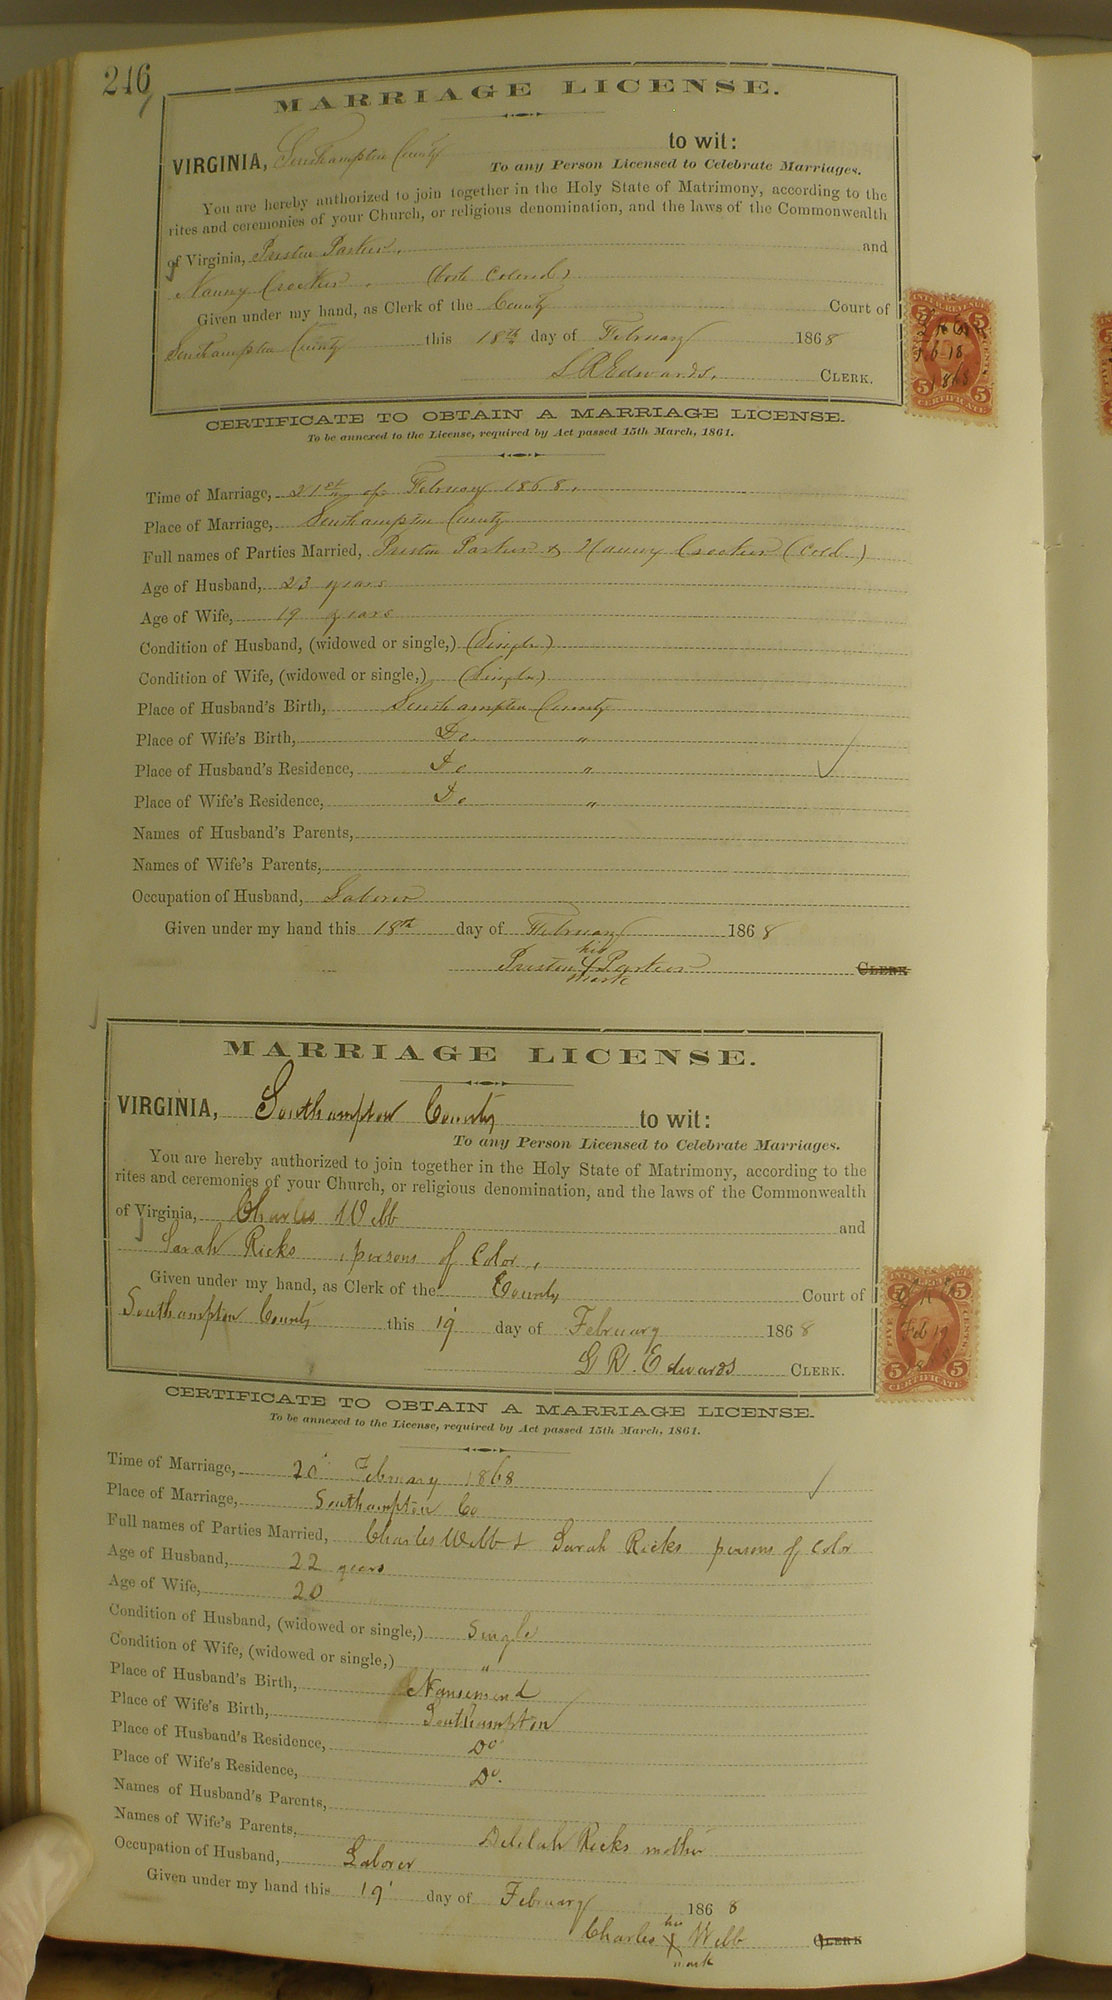 246
MARRIAGE LICENSE.
VIRGINIA, Southampton County to wit:
To any Person Licensed to Celebrate Marriages.
You are hereby authorized to join together in the Holy State of Matrimony, according to the
rites and ceremonies of your Church, or religious denomination, and the laws of the Commonwealth
of Virginia, Preston Parker, and
Nanny Crocker. (both Colored)
Given under my hand, as Clerk of the County Court of
Southampton County this 18th day of February 1868
L R Edwards, CLERK.
CERTIFICATE TO OBTAIN A MARRIAGE LICENSE.
To be annexed to the License, required by Act passed 15th March, 1861.
Time of Marriage, 21st of February 1868.
Place of Marriage, Southampton County
Full names of Parties Married, Preston Parker & Nanny Crocker (Cold.)
Age of Husband, 23 years
Age of Wife, 19 years
Condition of Husband, (widowed or single,) (Single)
Condition of Wife, (widowed or single,) (Single)
Place of Husband's Birth, Southampton County
Place of Wife's Birth, Do. "
Place of Husband's Residence, Do "
Place of Wife's Residence, Do "
Names of Husband's Parents,
Names of Wife's Parents,
Occupation of Husband, Laborer
Given under my hand this 18th day of February 1868
his
Preston X Parker CLERK
mark
MARRIAGE LICENSE.
VIRGINIA, Southampton County to wit:
To any Person Licensed to Celebrate Marriages.
You are hereby authorized to join together in the Holy State of Matrimony, according to the
rites and ceremonies of your Church, or religious denomination, and the laws of the Commonwealth
of Virginia, Charles Webb and
Sarah Ricks, persons of Color,
Given under my hand, as Clerk of the County Court of
Southampton County this 19 day of February 1868
L R. Edwards CLERK.
CERTIFICATE TO OBTAIN A MARRIAGE LICENSE.
To be annexed to the License, required by Act passed 15th March, 1861.
Time of Marriage, 20 February 1868
Place of Marriage, Southampton Co
Full names of Parties Married, Charles Webb & Sarah Ricks persons of Color
Age of Husband, 22 years
Age of Wife, 20 "
Condition of Husband, (widowed or single,) Single
Condition of Wife, (widowed or single,) "
Place of Husband's Birth, Nansemond
Place of Wife's Birth, Southampton
Place of Husband's Residence, Do
Place of Wife's Residence, Do.
Names of Husband's Parents,
Names of Wife's Parents, Delilah Ricks mother
Occupation of Husband, Laborer
Given under my hand this 19 day of February 1868
his
Charles X Webb CLERK
mark